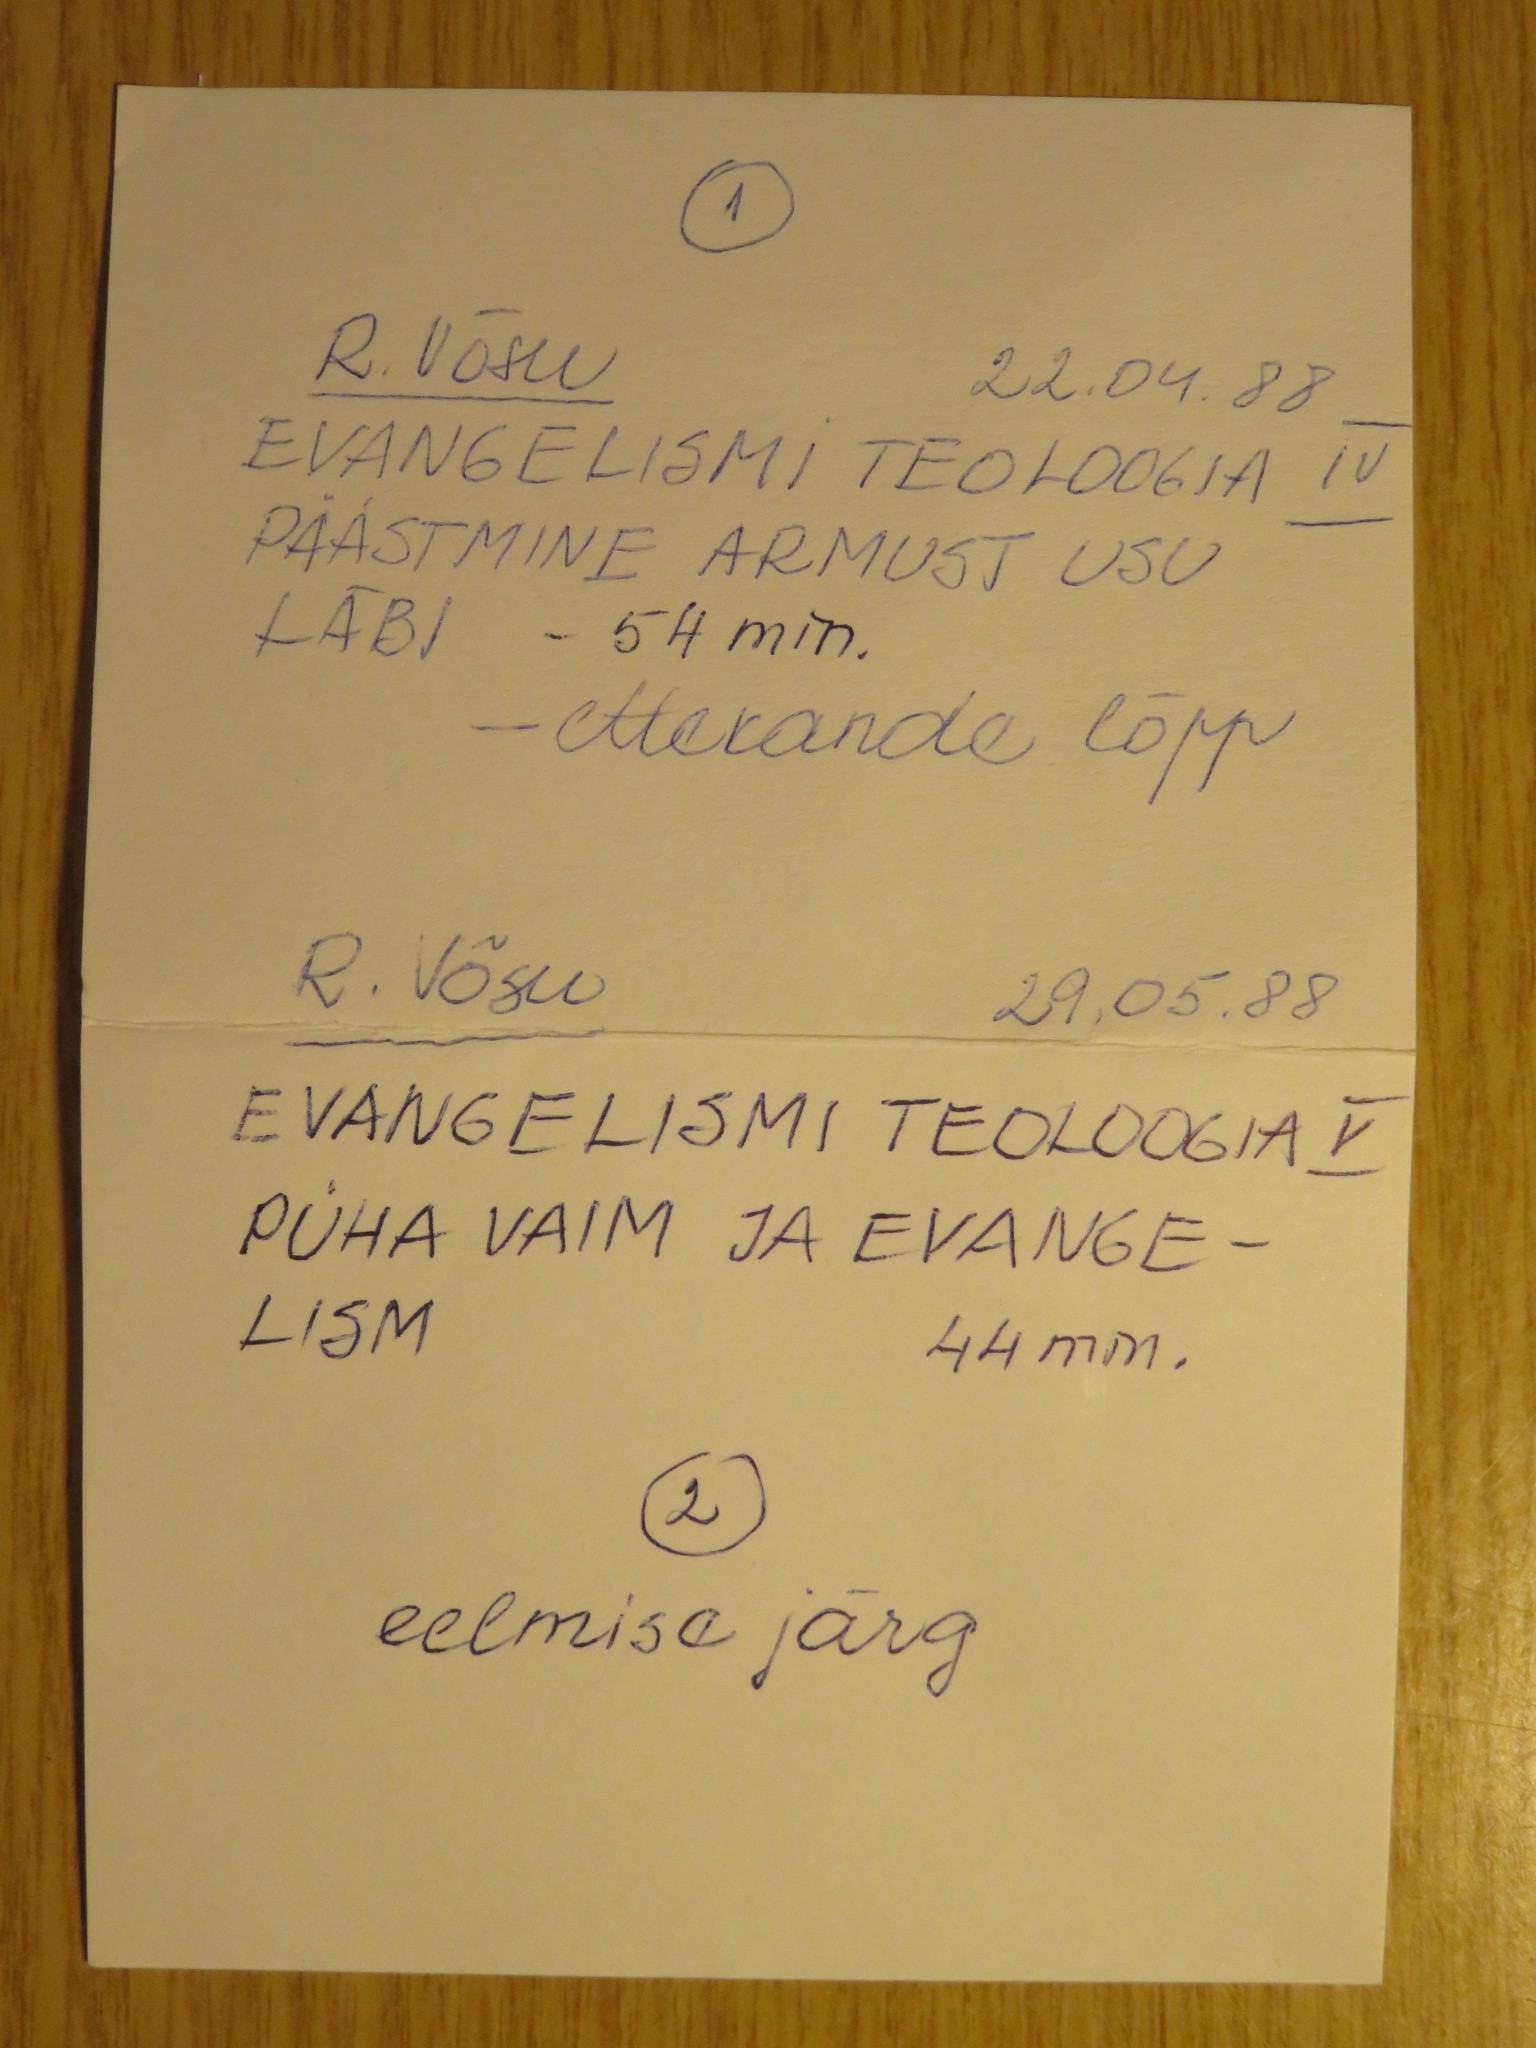 1
R. Võsu 22.04.88
EVANGELISMI TEOLOOGIA IV
PÄÄSTMINE ARMUST USU
LÄBI - 54 min.
- ettekande lõpp
R. Võsu 29.05.88
EVANGELISMI TEOLOOGIA V
PÜHA VAIM JA EVANGE-
LISM 44 min.
2
eelmise järg